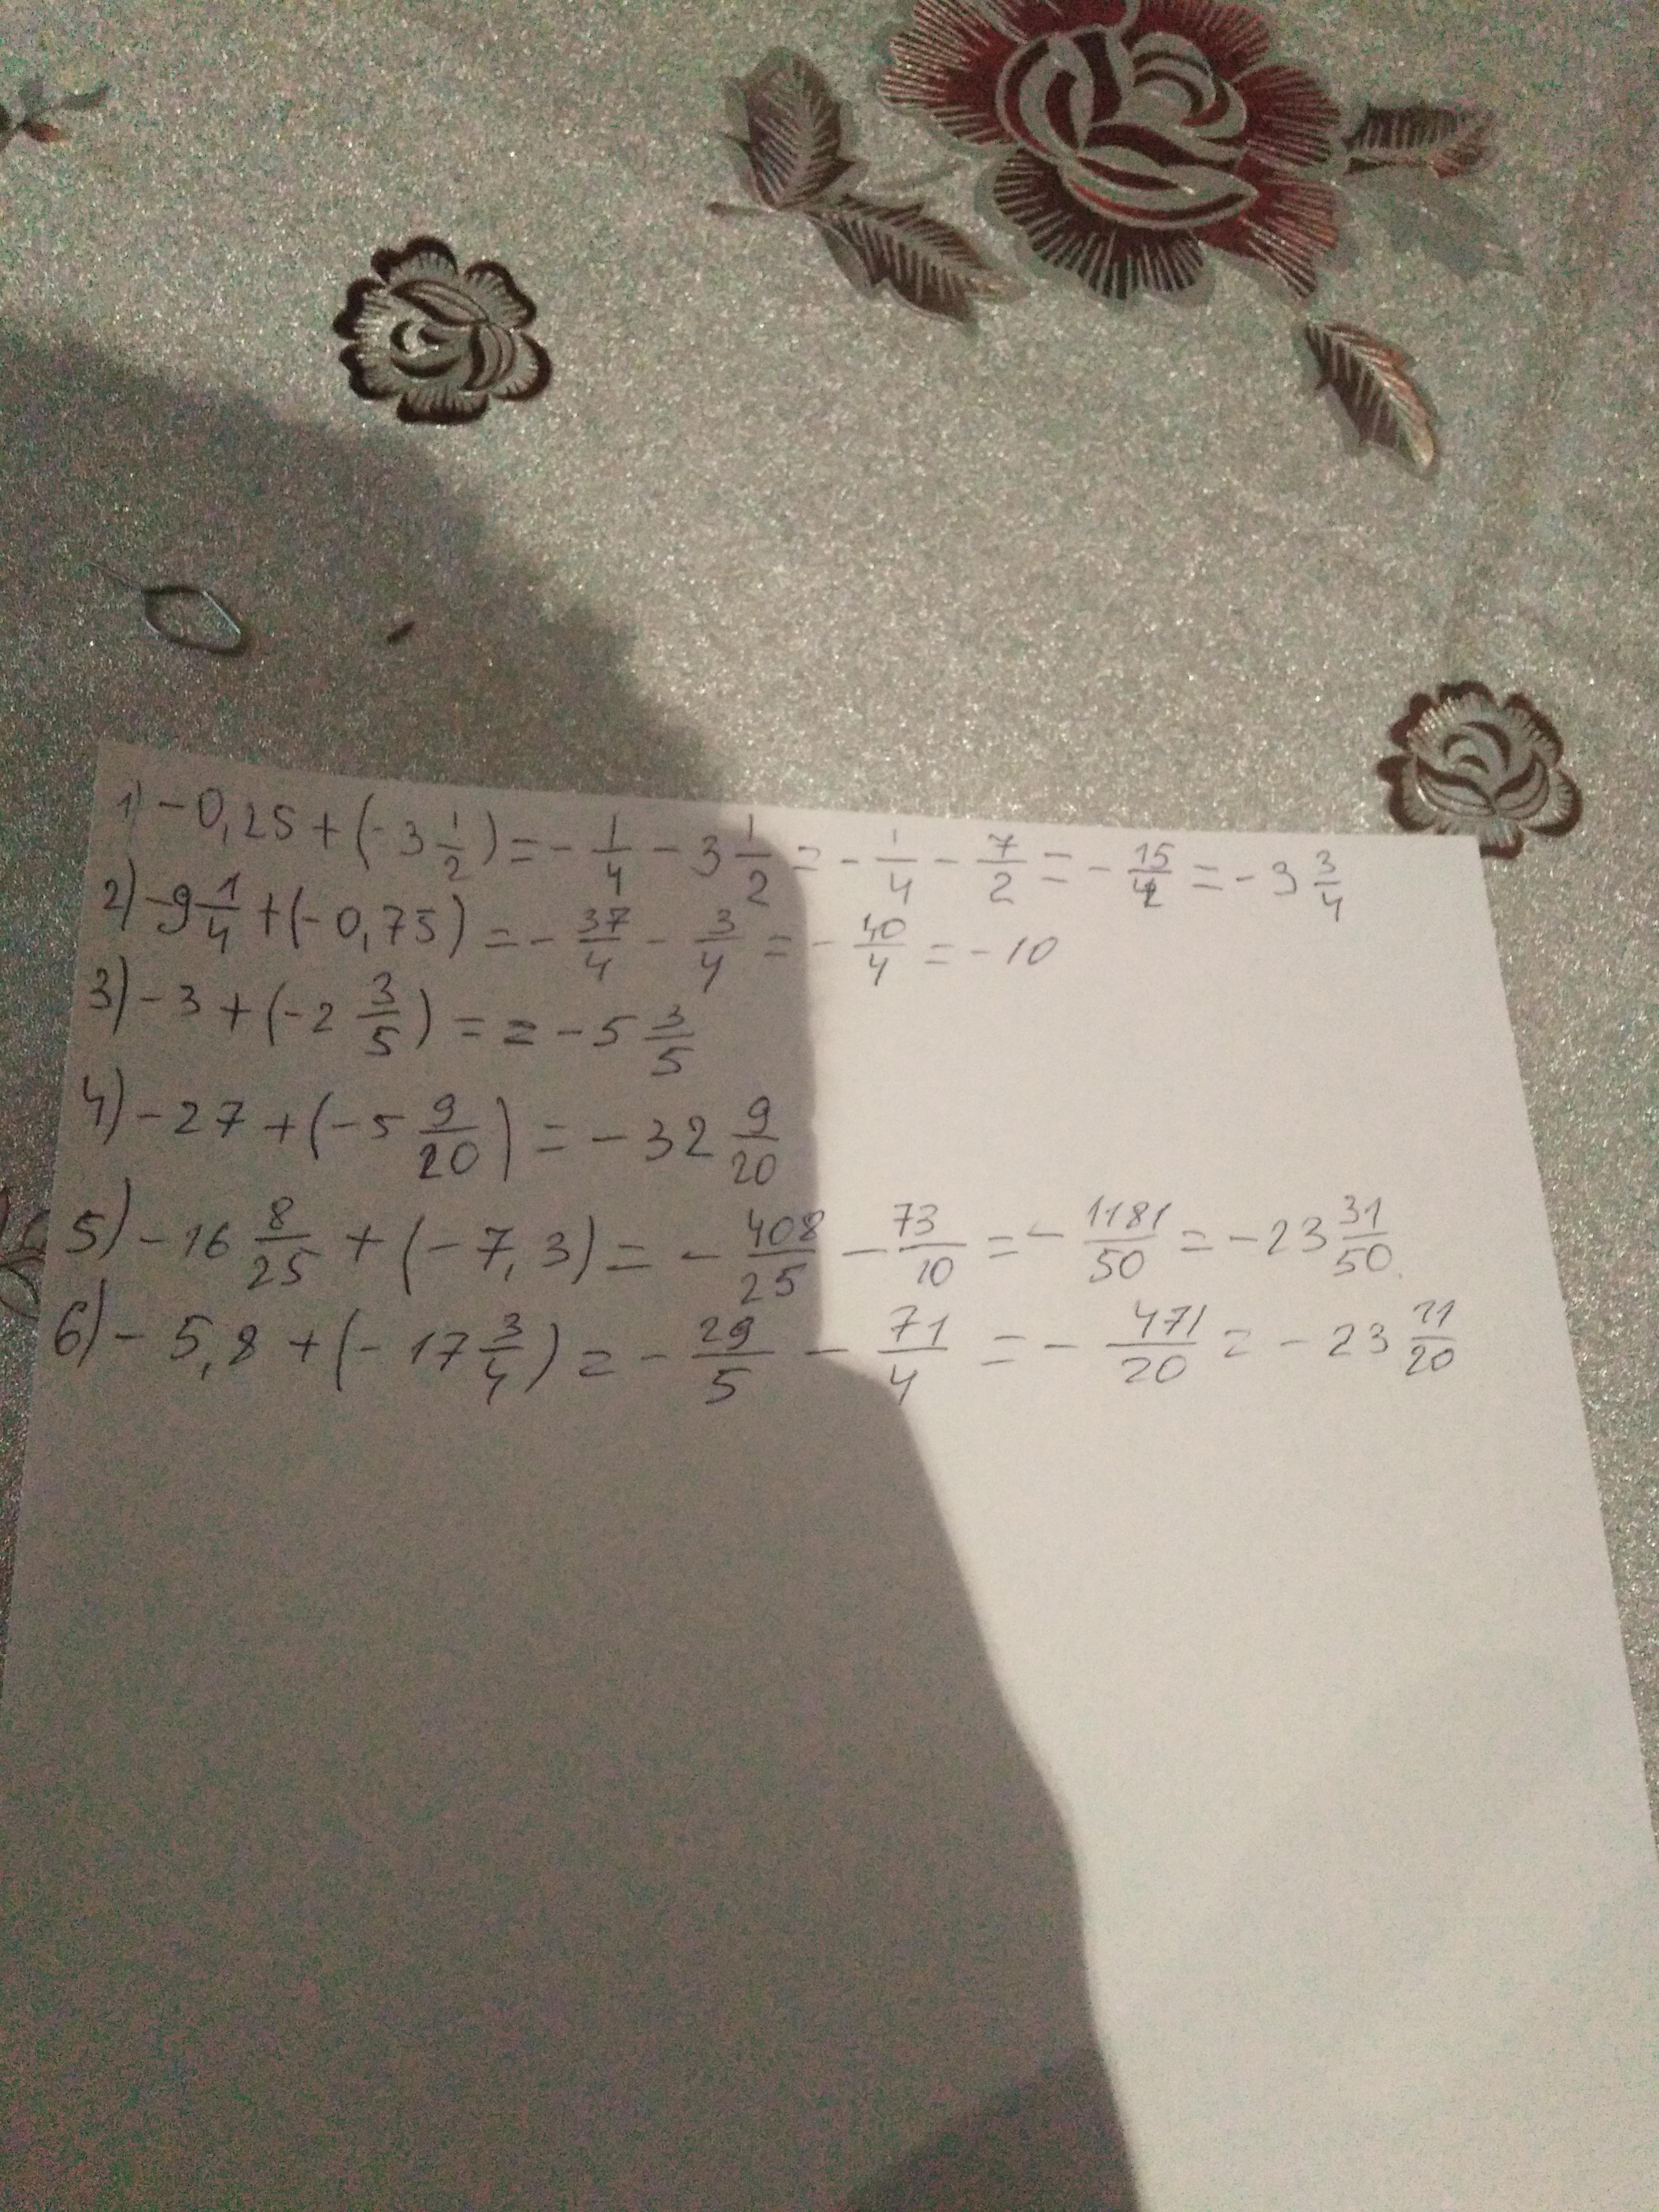 1) -0,25 + (-3 1/2) = - 1/4 - 3 1/2 = - 1/4 - 7/2 = - 15/4 = - 3 3/4
2) -9 1/4 + (-0,75) = - 37/4 - 3/4 = - 40/4 = - 10
3) - 3 + (-2 3/5) = = - 5 3/5
4) - 27 + (-5 9/20) = - 32 9/20
5) - 16 8/25 + (- 7,3) = - 408/25 - 73/10 = - 1181/50 = - 23 31/50
6) - 5,8 + (- 17 3/4) = - 29/5 - 71/4 = - 471/20 = - 23 11/20